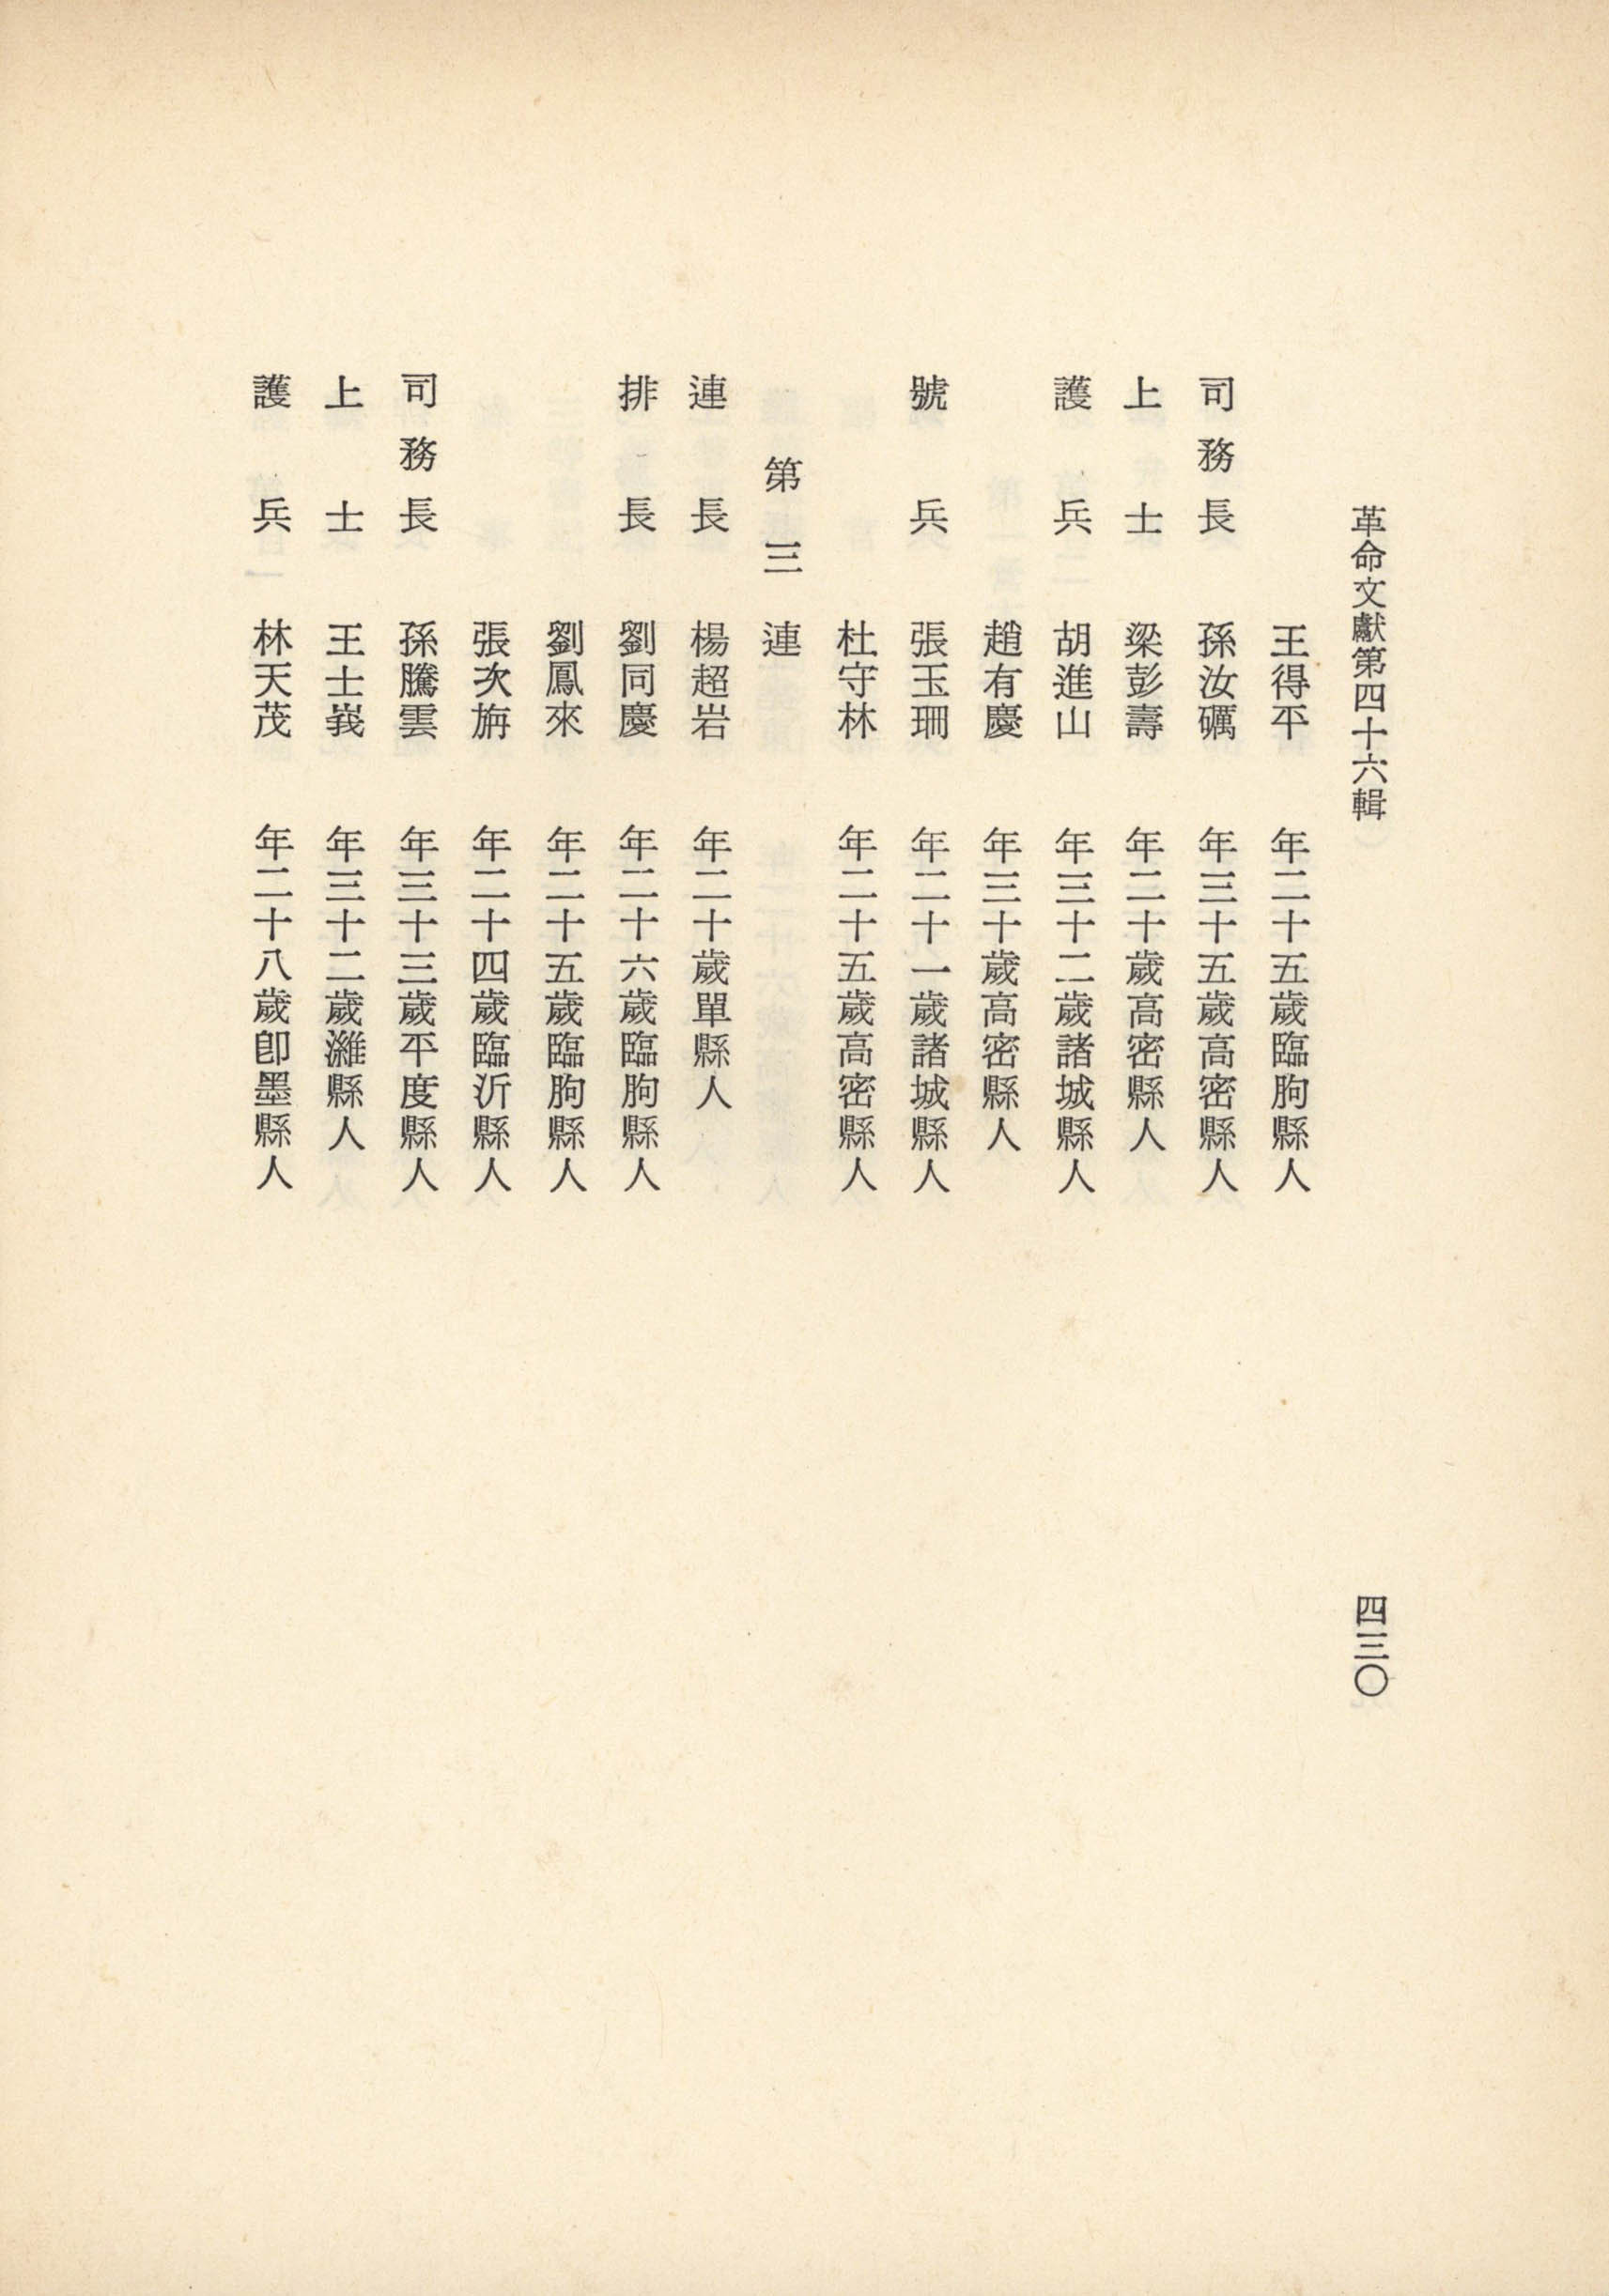 革命文獻第四十六輯
四三〇
王得平 年二十五歲臨朐縣人
司務長 孫汝礪 年三十五歲高密縣人
上士 梁彭壽 年二十歲高密縣人
護兵 胡進山 年三十二歲諸城縣人
趙有慶 年三十歲高密縣人
號兵 張玉珊 年二十一歲諸城縣人
杜守林 年二十五歲高密縣人
第三連
連長 楊超岩 年二十歲單縣人
排長 劉同慶 年二十六歲臨朐縣人
劉鳳來 年二十五歲臨朐縣人
張次旃 年二十四歲臨沂縣人
司務長 孫騰雲 年三十三歲平度縣人
上士 王士峩 年三十二歲濰縣人
護兵 林天茂 年二十八歲卽墨縣人